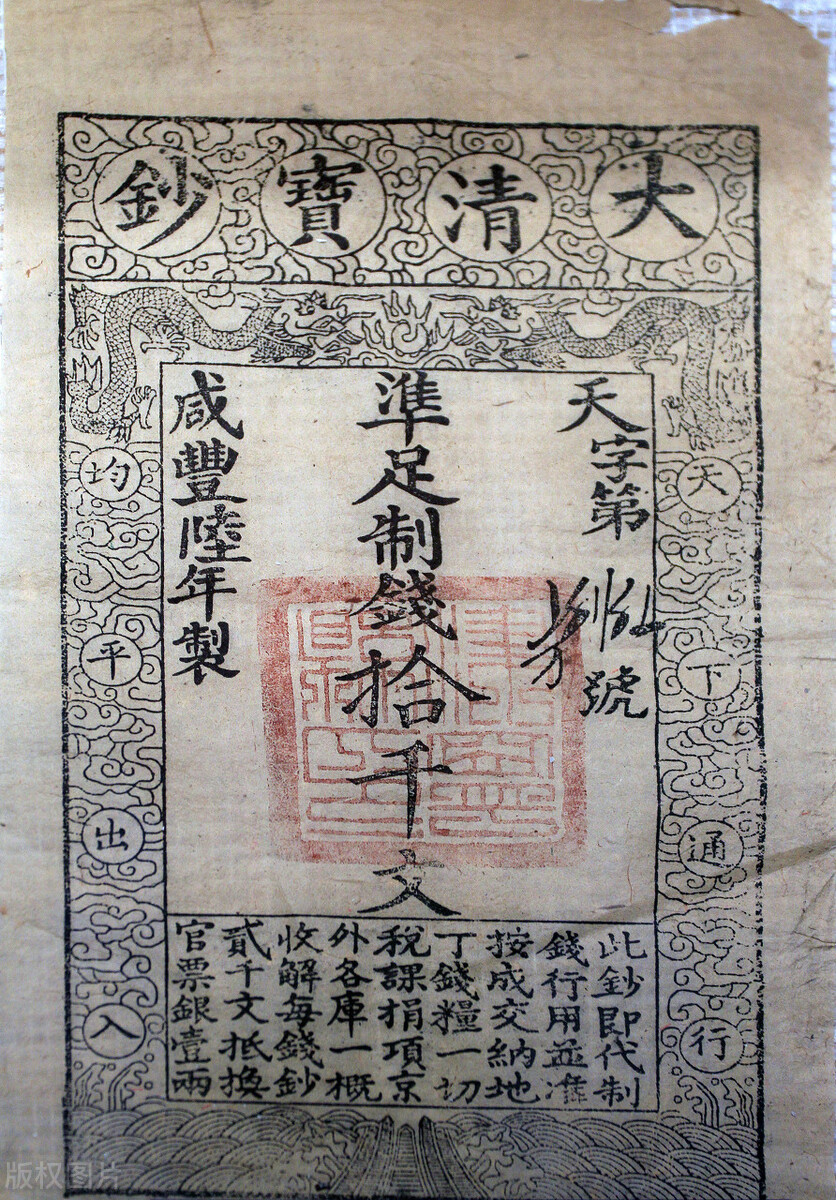 大清寶鈔
天字第
號
準足制錢拾千文
咸豐陸年製
天下通行
均平出入
此鈔即代制
錢行用並准
按成交納地
丁錢糧一切
稅課捐項京
外各庫一概
收解每錢鈔
貳千文抵換
官票銀壹兩
版权图片